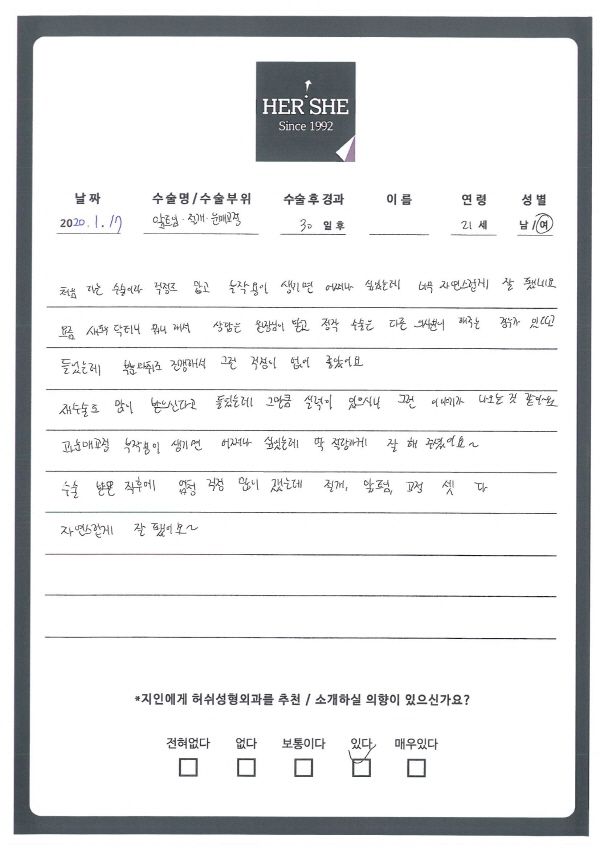 HER SHE
Since 1992
날 짜 수술명/수술부위 수술 후 경과 이 름 연 령 성 별
2020.1.17 앞트임·절개·눈매교정 30 일 후 21 세 남/여
처음 하는 수술이라 걱정도 많고 부작용이 생기면 어쩌나 싶었는데 너무 자연스럽게 잘 됐네요
요즘 섀도 닥터니 뭐니 해서 상담은 원장님이 받고 정작 수술은 다른 의사분이 해주는 경우가 있다고
들었는데 진행해서 그런 걱정이 없어 좋았어요
재수술도 많이 받으신다고 들었는데 그만큼 실력이 있으시니 그런 이야기가 나오는 것 같아요
눈매교정 부작용이 생기면 어쩌나 싶었는데 딱 적당하게 잘 해 주셨어요~
수술 받은 직후에 엄청 걱정 많이 했는데 절개, 앞트임, 교정 셋 다
자연스럽게 잘 됐어요~
*지인에게 허쉬성형외과를 추천 / 소개하실 의향이 있으신가요?
전혀없다 없다 보통이다 있다 매우있다